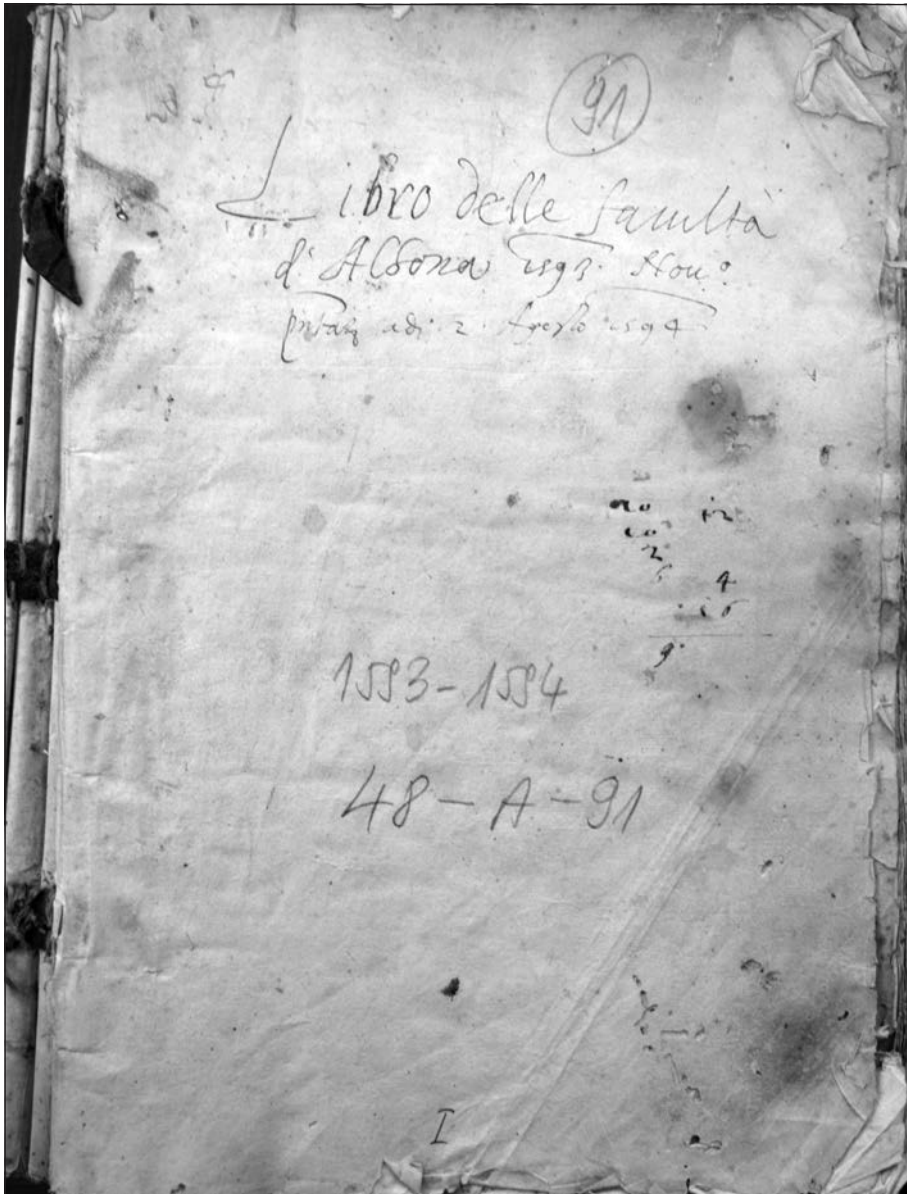 91
Libro delle facultà
d'Albona 1593. Nou.º
adi 2. Agosto 1594
2
4
9
1593-1594
48-A-91
I